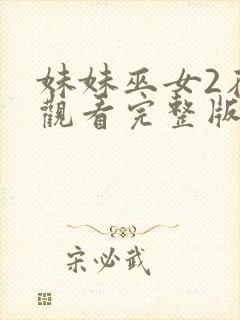 妹妹巫女2
觀看完整版
宋必武